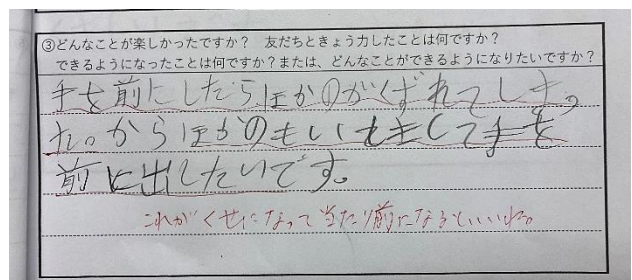 ③どんなことが楽しかったですか？　友だちときょう力したことは何ですか？
できるようになったことは何ですか？または、どんなことができるようになりたいですか？
手を前にしたらほかのがくずれてしまっ
た。からほかのもいしきして手を
前に出したいです。
これがくせになって当たり前になるといいね。